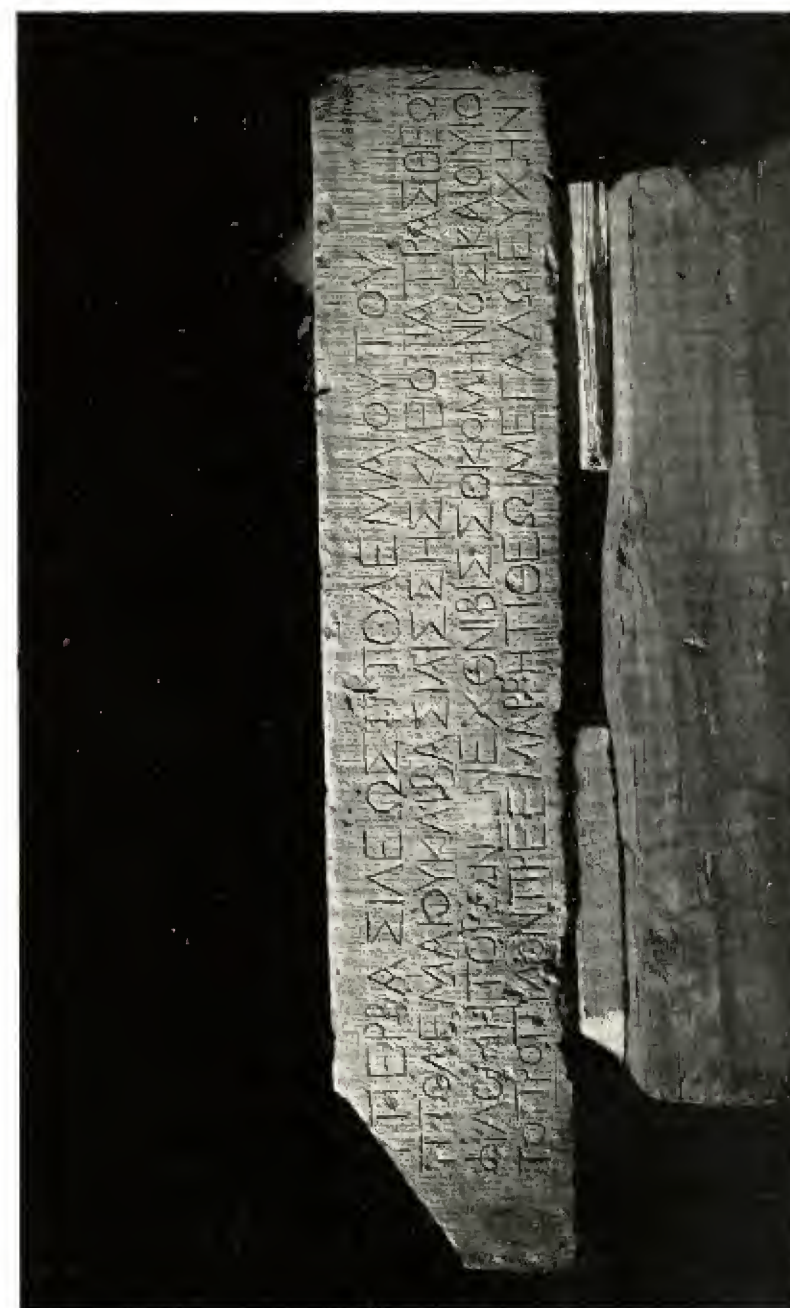 ΠΕΡΒΑΣΙΛΕΩΣΠΤΟΛΕΜΑΙΟΥΤΟΥ
ΠΤΟΛΕΜΑΙΟΥΚΑΙΒΑΣΙΛΙΣΣΗΣΚΛΕΟΠΑΤΡΑΣΘΕΩΝ
ΦΙΛΟΜΗΤΟΡΩΝ ΝΕΧΘΝΙΒΙΣΣΟΚΟΜΗΝΙΟΣΚΑΙΟΙΥΙΟΙ
ΤΟΠΡΟΠΥΛΟΝΠΡΕΕΜΑΡΡΗΤΙΘΕΩΙΜΕΓΑΛΩΙΕΥΧΗΝ